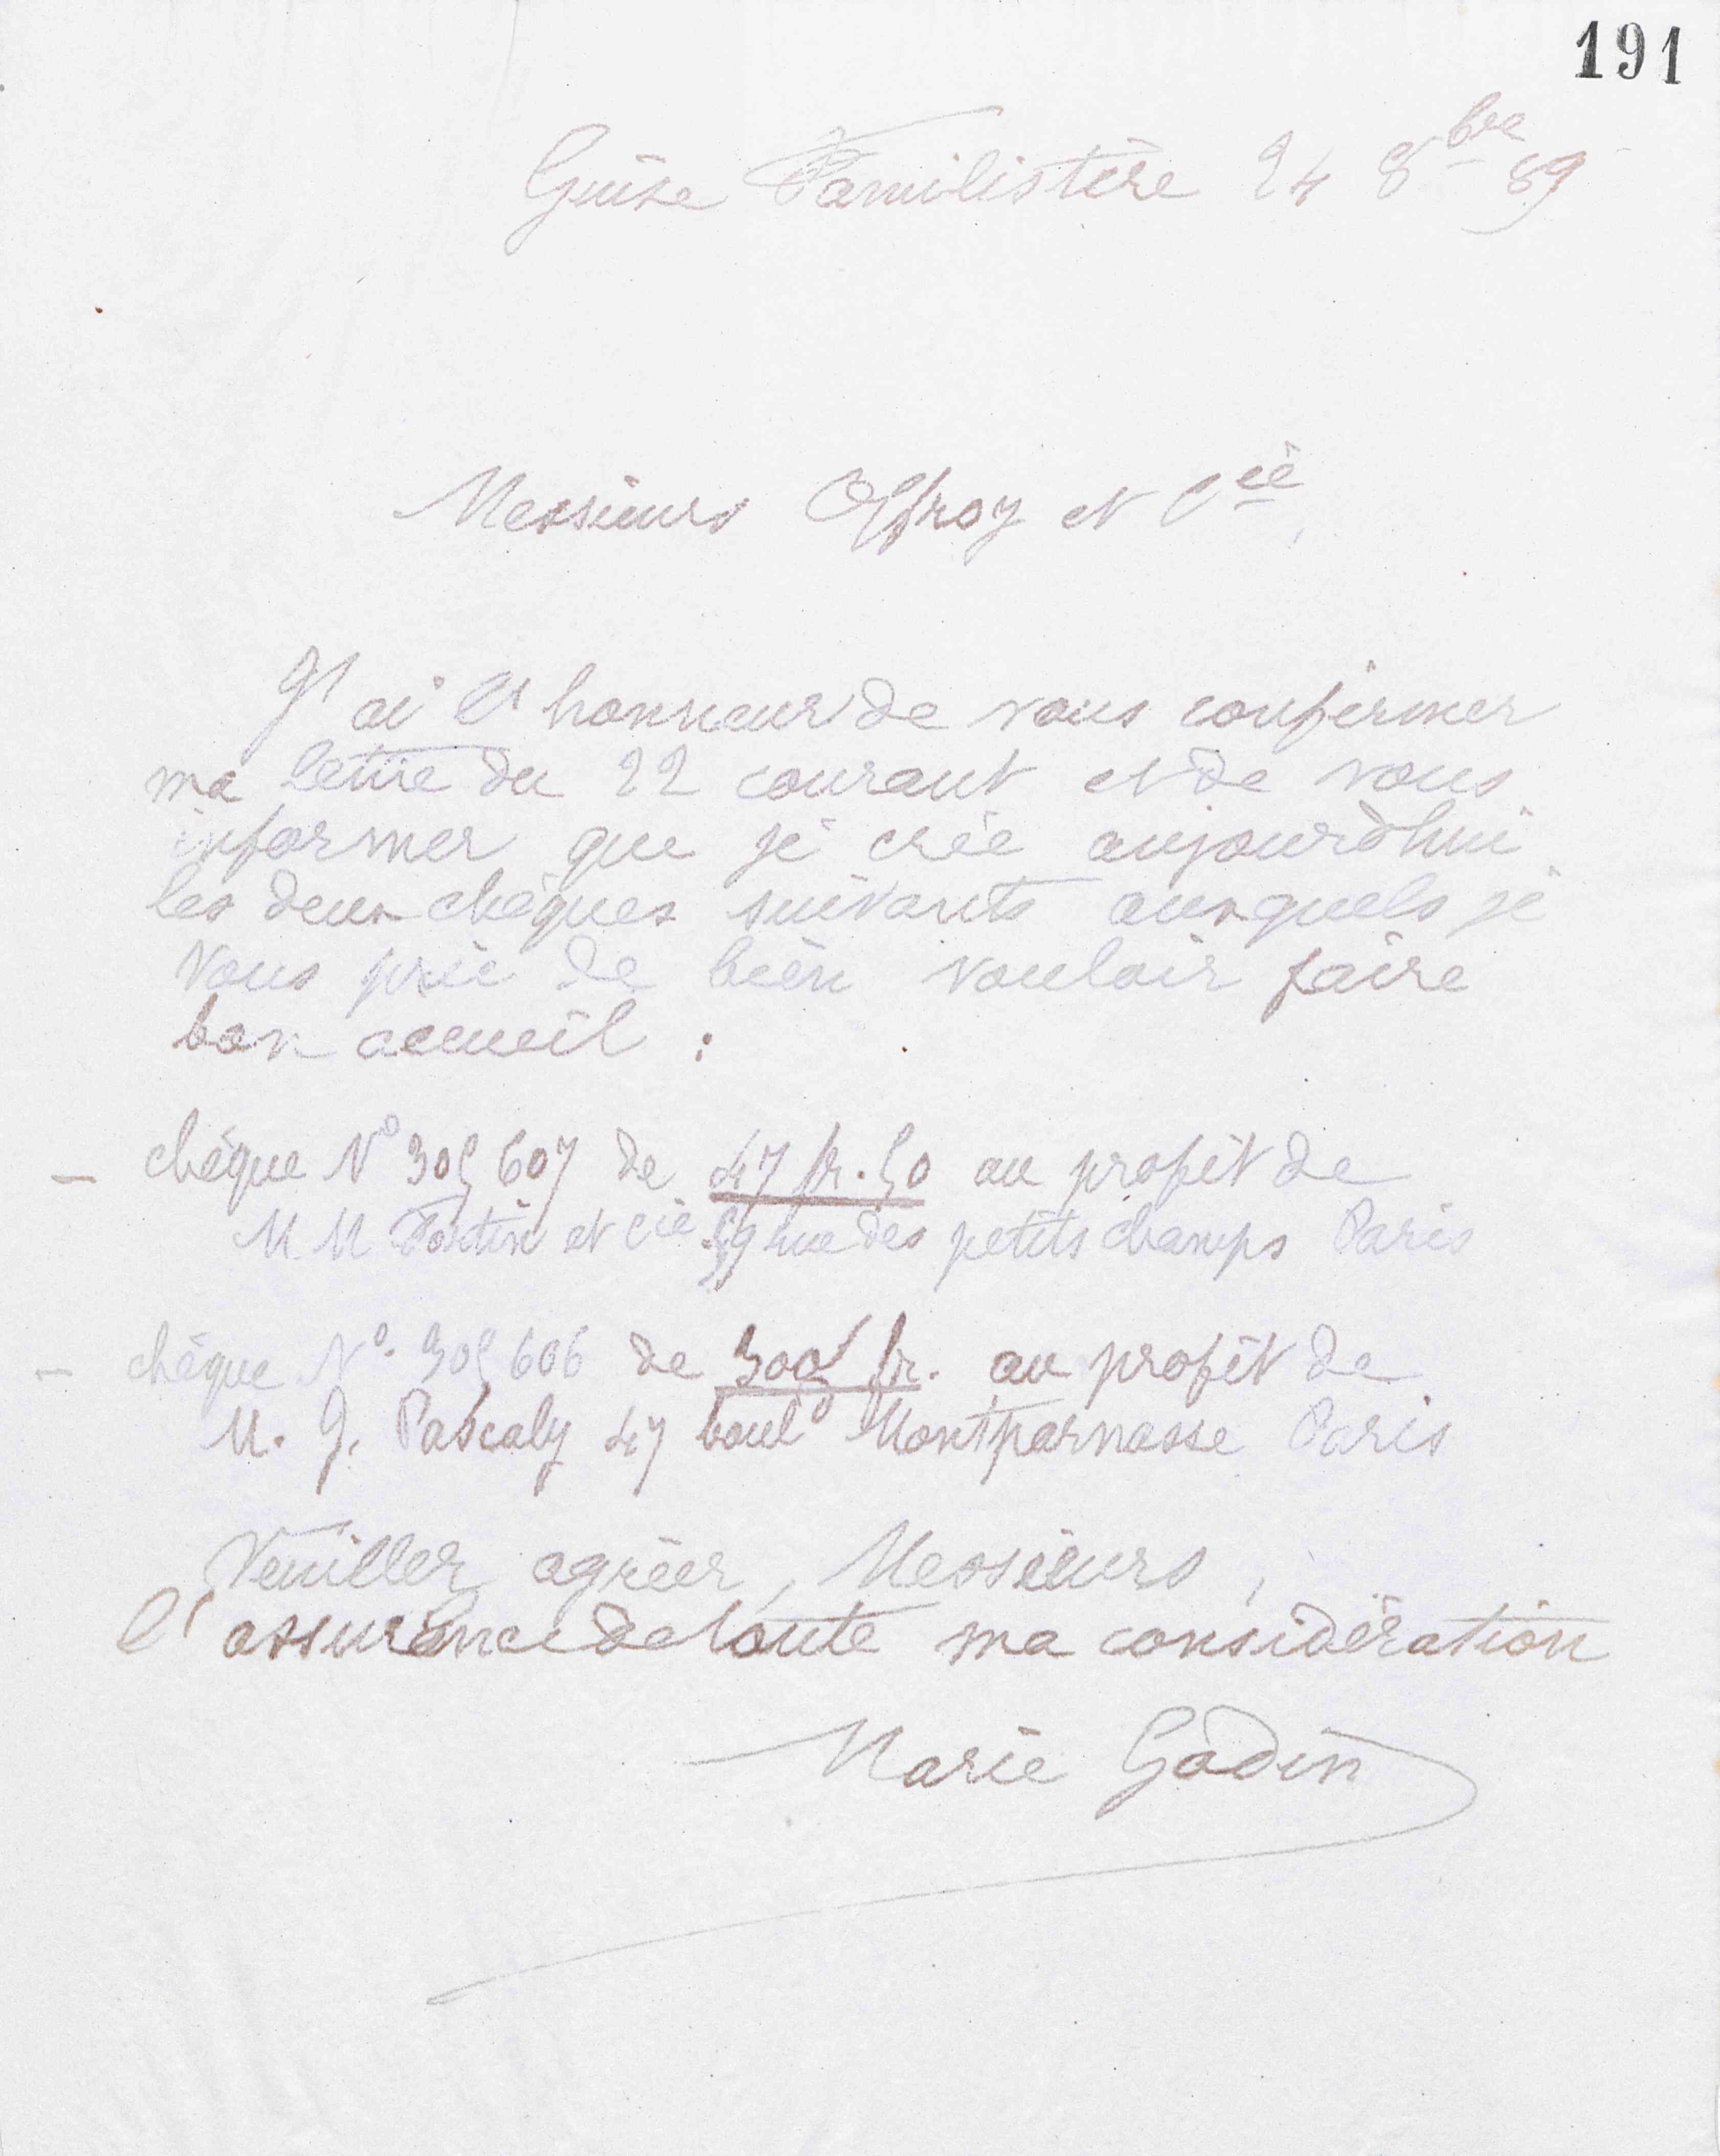 191
Guise Familistère 24 8bre 89
Messieurs Offroy et Cie,
J'ai l'honneur de vous confirmer
ma lettre du 22 courant et de vous
informer que je crée aujourd'hui
les deux chèques suivants auxquels je
vous prie de bien vouloir faire
bon accueil :
– chèque N° 305 607 de 47 fr. 50 au profit de
M. M. Fortin et Cie 59 rue des petits champs Paris
– chèque N° 305 606 de 300 fr. au profit de
M. J. Pascaly 47 boul'd Montparnasse Paris
Veuillez agréer, Messieurs,
l'assurance de toute ma considération
Marie Godin